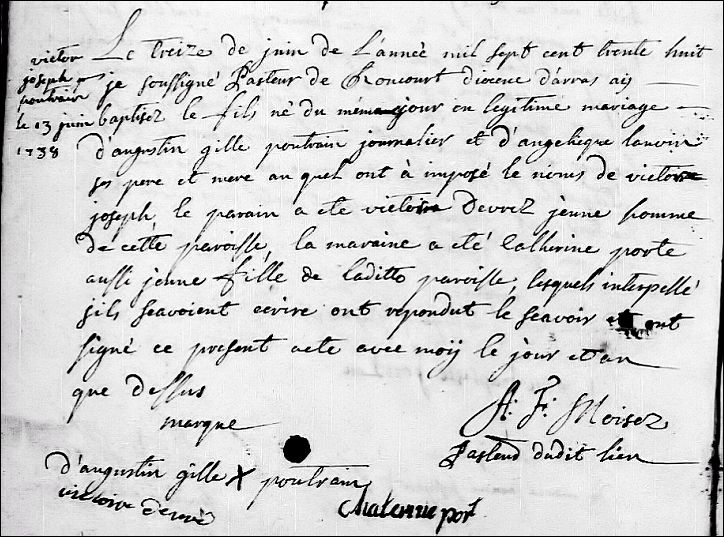 victor
joseph
poutrain
le 13 juin
1738
Le treize de juin de L'année mil sept cent trente huit
je soussigné Pasteur de Roncourt diocese d'arras ais
baptisez le fils né du même jour en legitime mariage
d'augustin gille poutrain journalier et d'angelieque lauvin
ses pere et mere auquel ont à imposé le noms de victor
joseph, le parain a eté victoire Devrez jeune homme
de cette paroisse, la maraine a eté Catherine porte
aussi jeune fille de laditto paroisse, lesquels interpellé
sils scavoient ecrire ont repondut le scavoir et ont
signé ce present acte avec moÿ le jour et an
que dessus
marque
A: F: Moisez
Pasteur dudit lieu
d'augustin gille X poutrain
victoire devré
Chaterine port